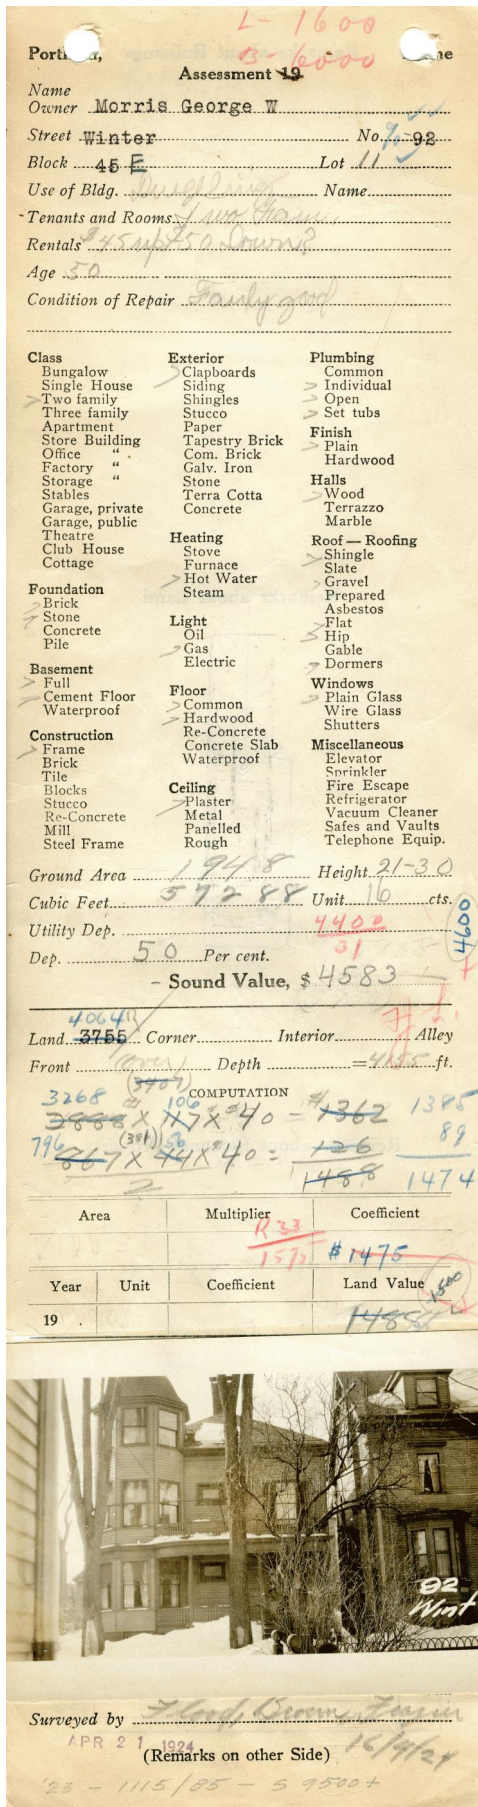 L- 1600
B- 6000
Portland, Maine
Assessment 19
Name
Owner Morris George W
Street Winter No. 90-92
Block 45 E Lot 11
Use of Bldg. Dwelling Name
Tenants and Rooms Two Fam.
Rentals $45 up $50 Down?
Age 50
Condition of Repair Fairly good
Class
Bungalow
Single House
Two family
Three family
Apartment
Store Building
Office "
Factory "
Storage "
Stables
Garage, private
Garage, public
Theatre
Club House
Cottage
Foundation
Brick
Stone
Concrete
Pile
Basement
Full
Cement Floor
Waterproof
Construction
Frame
Brick
Tile
Blocks
Stucco
Re-Concrete
Mill
Steel Frame
Exterior
Clapboards
Siding
Shingles
Stucco
Paper
Tapestry Brick
Com. Brick
Galv. Iron
Stone
Terra Cotta
Concrete
Heating
Stove
Furnace
Hot Water
Steam
Light
Oil
Gas
Electric
Floor
Common
Hardwood
Re-Concrete
Concrete Slab
Waterproof
Ceiling
Plaster
Metal
Panelled
Rough
Plumbing
Common
Individual
Open
Set tubs
Finish
Plain
Hardwood
Halls
Wood
Terrazzo
Marble
Roof — Roofing
Shingle
Slate
Gravel
Prepared
Asbestos
Flat
Hip
Gable
Dormers
Windows
Plain Glass
Wire Glass
Shutters
Miscellaneous
Elevator
Sprinkler
Fire Escape
Refrigerator
Vacuum Cleaner
Safes and Vaults
Telephone Equip.
Ground Area 1948 Height 21-30
Cubic Feet 57288 Unit 16 cts.
4600
Utility Dep. 4400
31
Dep. 50 Per cent.
- Sound Value, $ 4583
4064
Land 3755 Corner Interior Alley
Front (over) Depth = 4155 ft.
(3407)
COMPUTATION
3268 106
2888 x 117 x $40 = $1362 1385
796 (381) 56 89
867 x 44 x $40 = 126
2 1488 1474
Area Multiplier Coefficient
R 33
1575 $1475
Year Unit Coefficient Land Value 1500
19 . 1488
92
Wint
Surveyed by
APR 21 1924 16/4/24
(Remarks on other Side)
'23 - 1115/85 - S 9500+